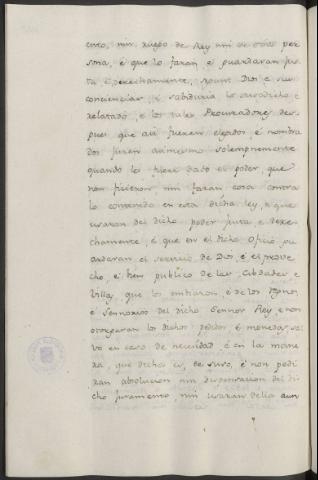 cio, nin ruego de Rey nin de otra per
sona, é que lo faran é guardaran jus
ta é derechamente, segunt Dios é sus
conciencias, é sabiduria lo susodicho é
relatado, é los tales Procuradores des
pues que asi fueren elegidos, é nombra
dos juren asimesmo solempnemente
quando les fuere dado el poder, que
non ficieron, nin faran cosa contra
lo contenido en esta dicha ley, é que
usaran del dicho poder justa é dere
chamente, é que en el dicho Oficio gu
ardaran el servicio de Dios, é el prove
cho, é bien publico de las Cibdades é
Villas, que los embiaron, é de los Regnos
é Sennorios del dicho Sennor Rey, é non
otorgaran los dichos pedidos é monedas, sal
vo en caso de necesidad é en la mane
ra, que dicha es, de suso, é non pedi
ran absolucion nin dispensacion del di
cho juramento, nin usaran della aun